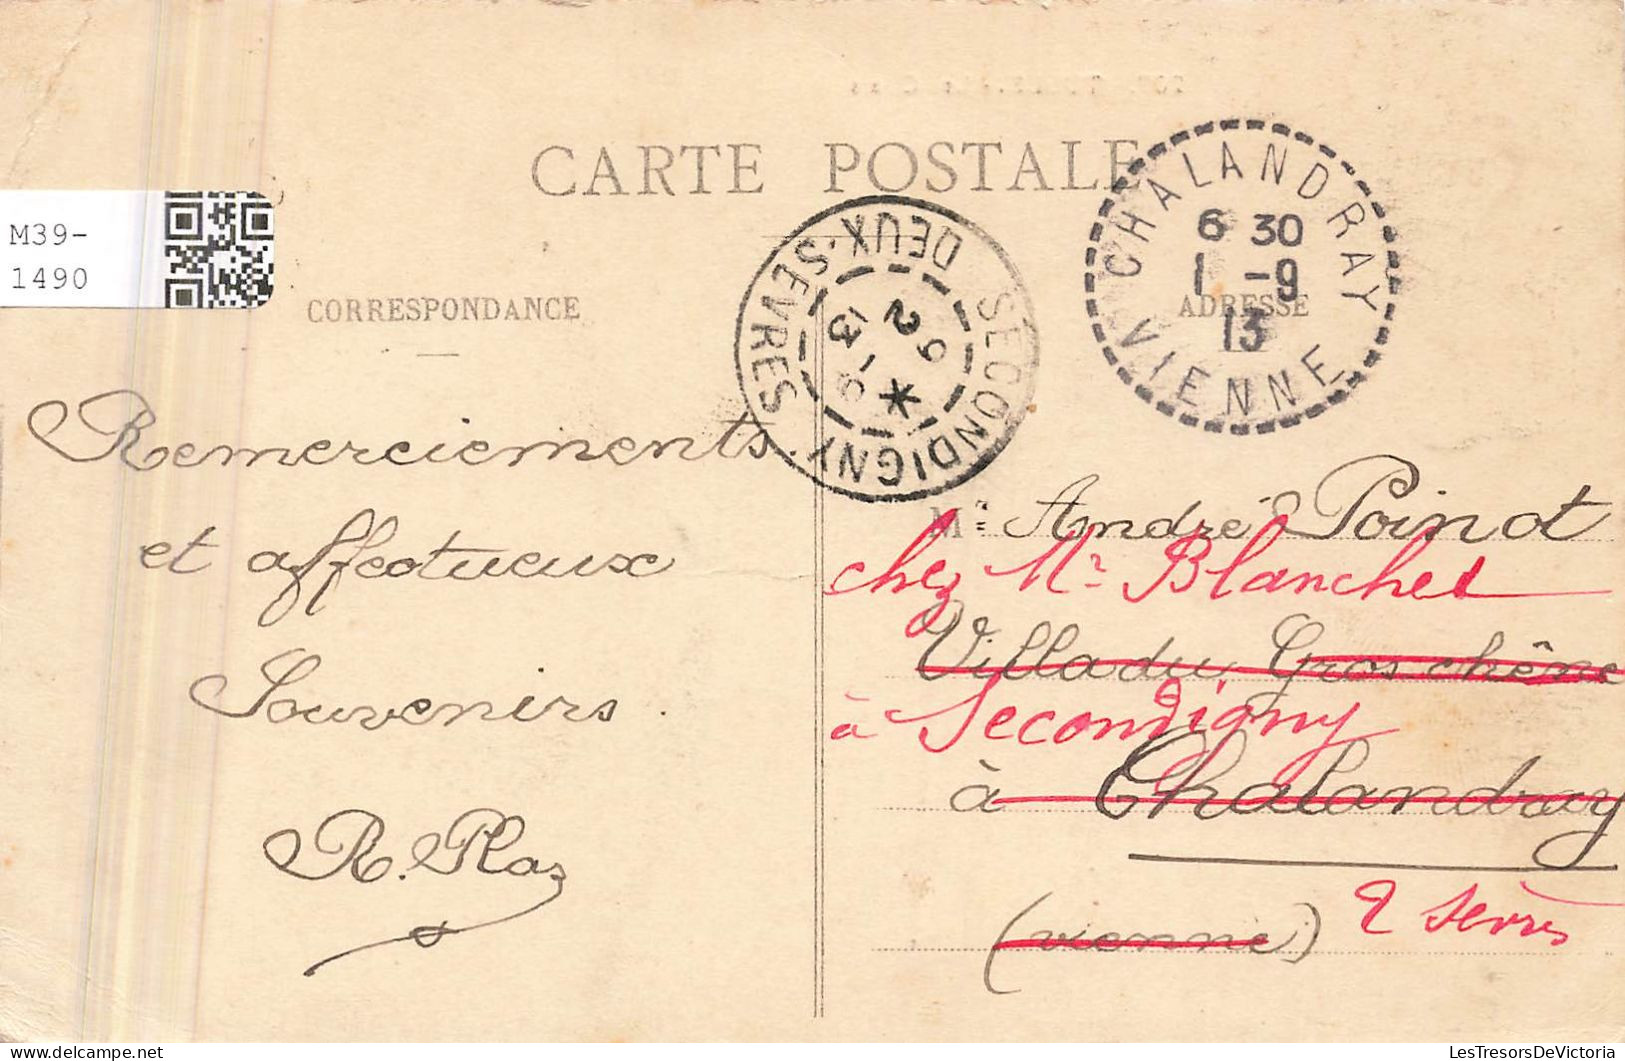 CARTE POSTALE
M39-
1490
CORRESPONDANCE
ADRESSE
CHALANDRAY
6 30
1 -9
13
VIENNE
SECONDIGNY
DEUX-SEVRES
6
2 -9
13
Remerciements
et affectueux
Souvenirs.
R. Plaz
Mr André Poinot
chez Mr Blanchet
Villa du Gros chêne
à Secondigny
à Chalandray
(vienne) 2 Sevres
LesTresorsDeVictoria